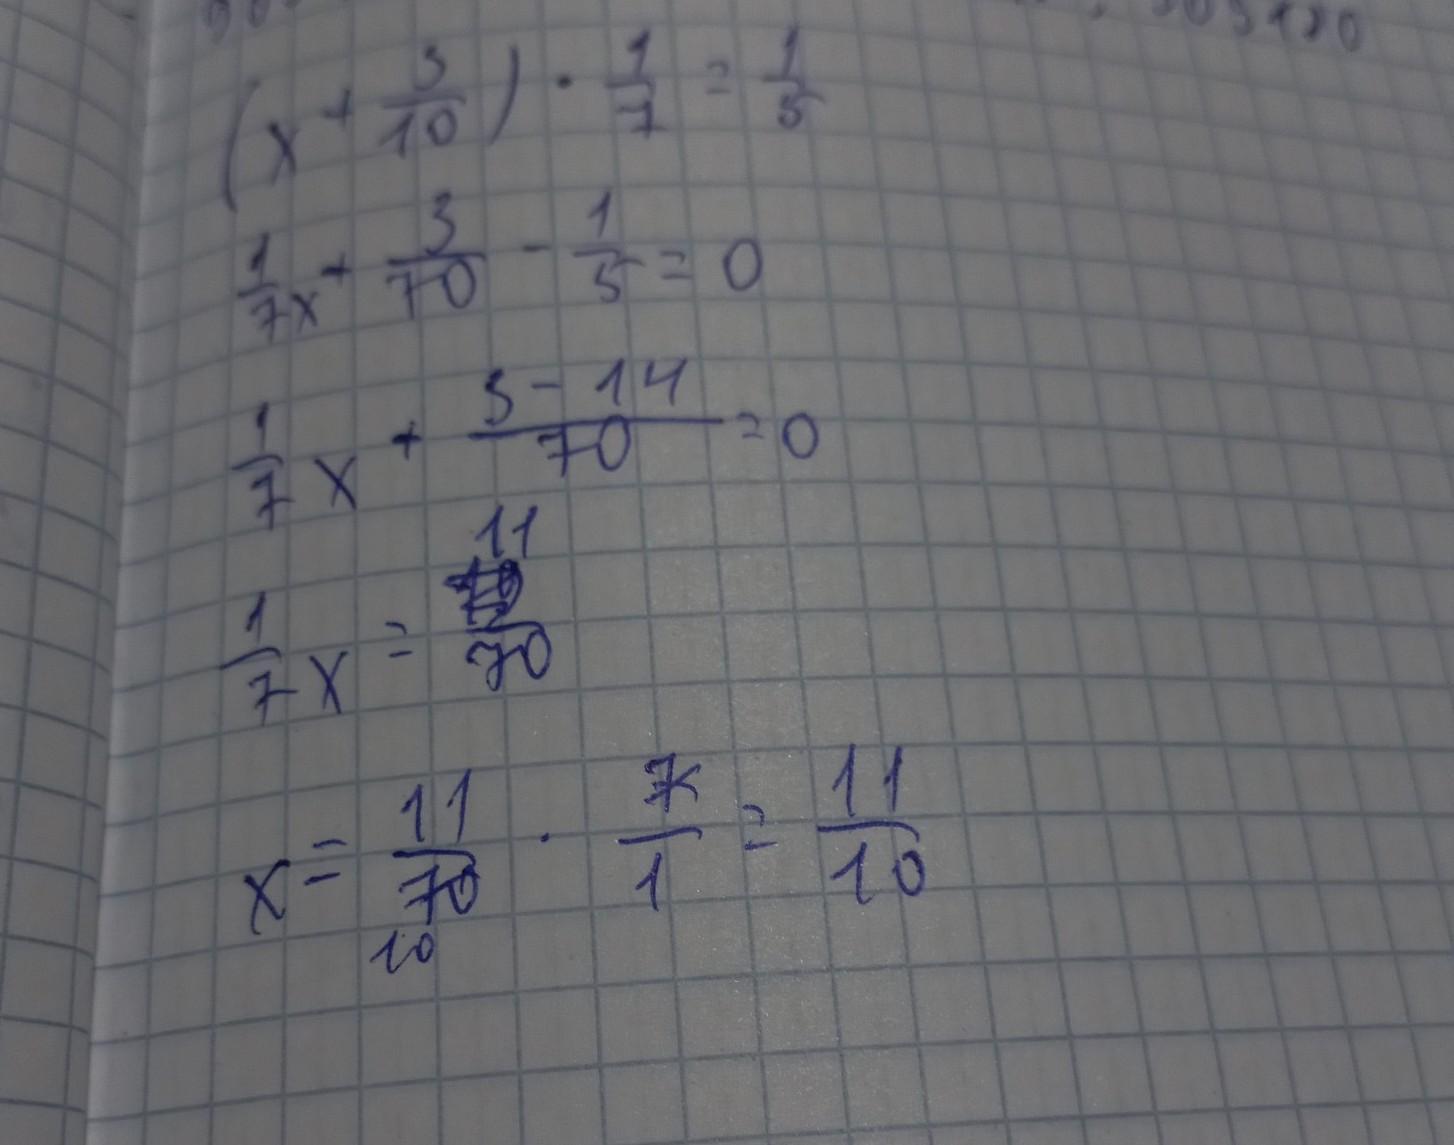 (x + 3/10) · 1/7 = 1/5
1/7 x + 3/70 - 1/5 = 0
1/7 x + (3 - 14)/70 = 0
1/7 x = 11/70
x = 11/70 · 7/1 = 11/10
10